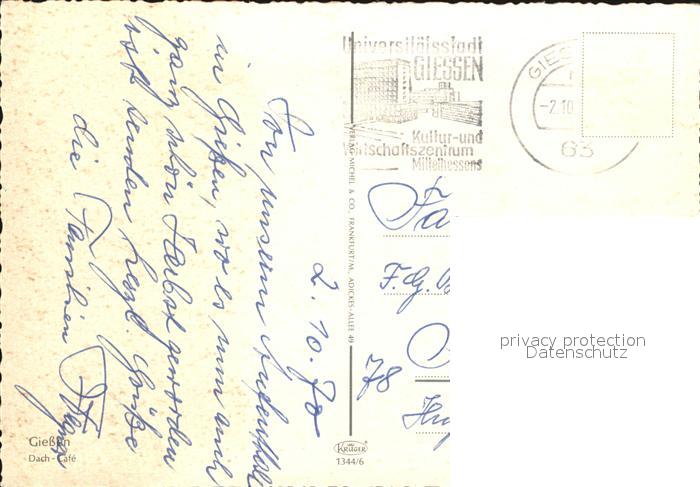 Universitätsstadt
GIESSEN
Kultur-und
Wirtschaftszentrum
Mittelhessens
GIES
-2.10
63
2. 10. 70
Von unserem Aufenthalt
in Gießen, wo es nun auch
ganz schön Herbst geworden
ist senden herzl. Grüße
die Familien
VERLAG MICHEL & CO., FRANKFURT/M., ADICKES-ALLEE 49
Fa
F. G.
78
privacy protection
Datenschutz
Gießen
Dach - Café
KRÜGER
1344/6